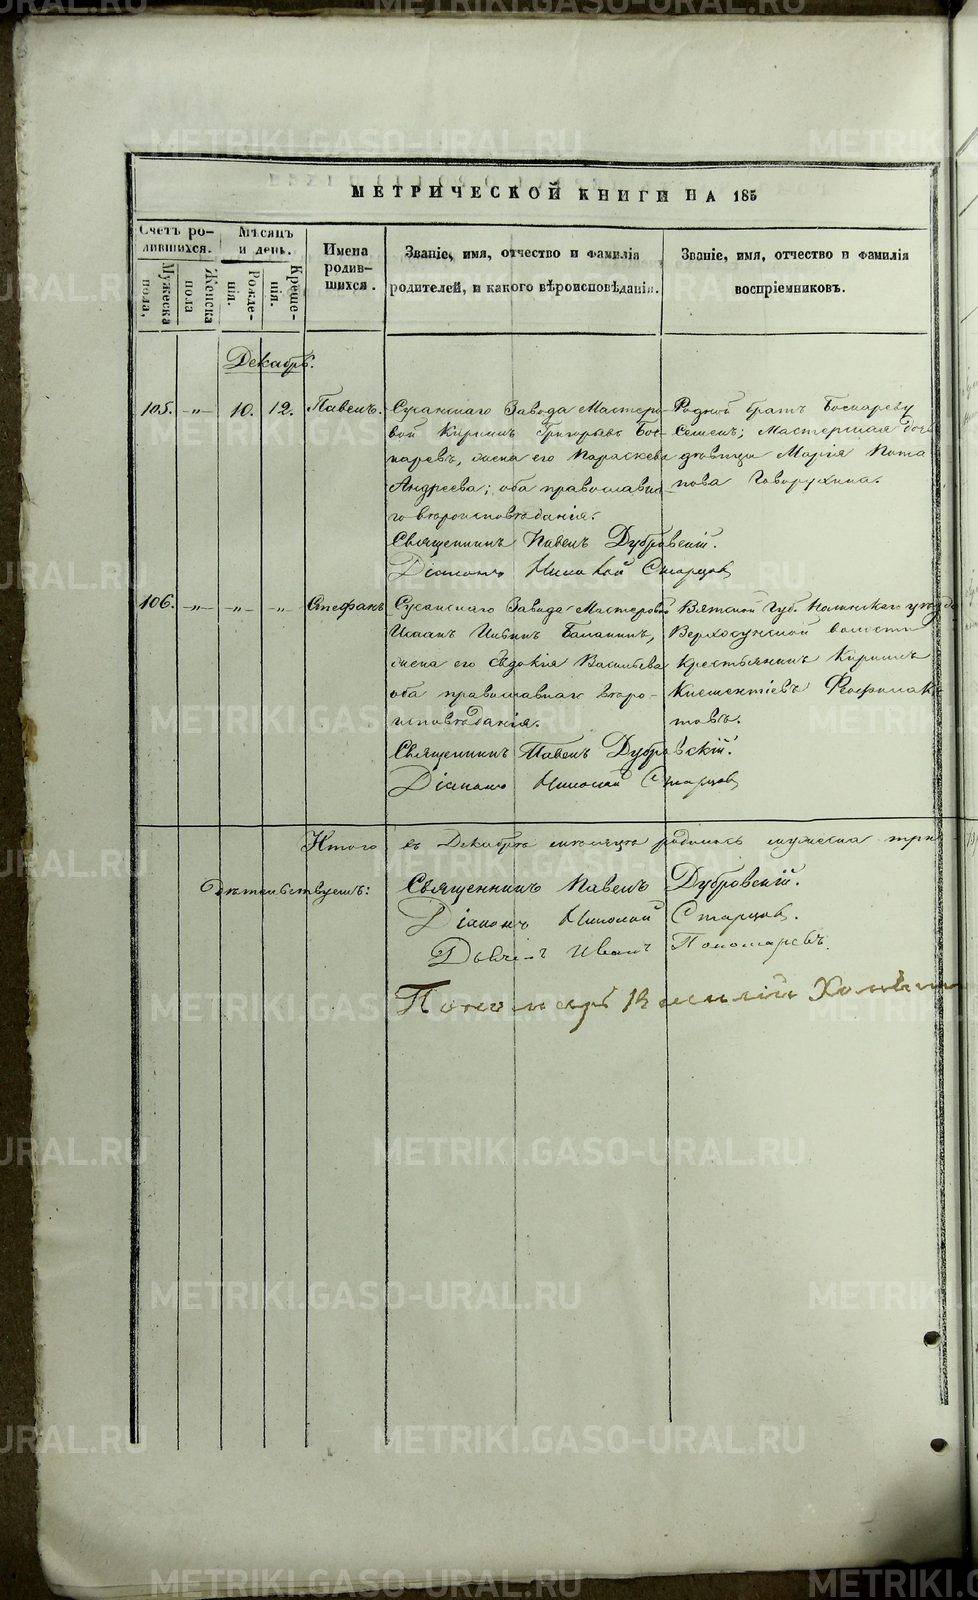 МЕТРИЧЕСКОЙ КНИГИ НА 185
Счетъ ро-
дившихся.
Мѣсяцъ
и день.
Имена
родив-
шихся.
Званіе, имя, отчество и фамилія
родителей, и какого вѣроисповѣданія.
Званіе, имя, отчество и фамилія
воспріемниковъ.
Мужеска
пола,
Женска
пола
Рожде-
нія.
Креще-
нія.
Декабрь.
105. -„- 10. 12. Павелъ.
Сусанскаго Завода Мастеро-
вой Кирилъ Григорьевъ Бос-
каревъ, жена его Параскева
Андреева; оба православна-
го вѣроисповѣданія.
Священникъ Павелъ Дубровскій.
Діаконъ Николай Старцов
Родной братъ Боскареву
Семенъ; Мастерская дочь
дѣвица Марія Пота
пова Говорухина.
106. -„- -„- -„- Стефанъ
Сусанскаго Завода Мастеровой
Исаакъ Балакинъ,
жена его Евдокія Васильева
оба православнаго вѣро-
исповѣданія.
Священникъ Павелъ Дубровскій.
Діаконъ Николай Старцов
Вятской Губ. Нолинскаго уѣзда
Верхосунской волости
крестьянинъ Кирилъ
Феофилак
товъ.
Итого въ Декабрѣ мѣсяцѣ родилось мужеска три
Священникъ Павелъ Дубровскій.
Діаконъ Николай Старцов.
Иванъ Пономаревъ.
Пономарь
METRIKI.GASO-URAL.RU